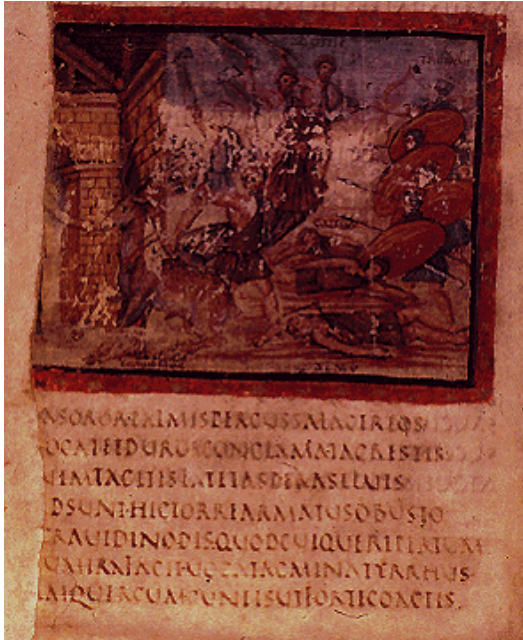 ASORORPALMISPERCUSSALACERTOS
OCATETDUROSCONCLAMATAGRESTIS
NIMTACITISLATETASPERASILUIS
DSUNTHICTORREARMATUSOBUSTO
RAUIDINODISQUODCUIQUEREPERTUM
UMIRAFACITUOCATAGMINATYRRHUS
AMQUERCUMCUNEISUTFORTECOACTIS